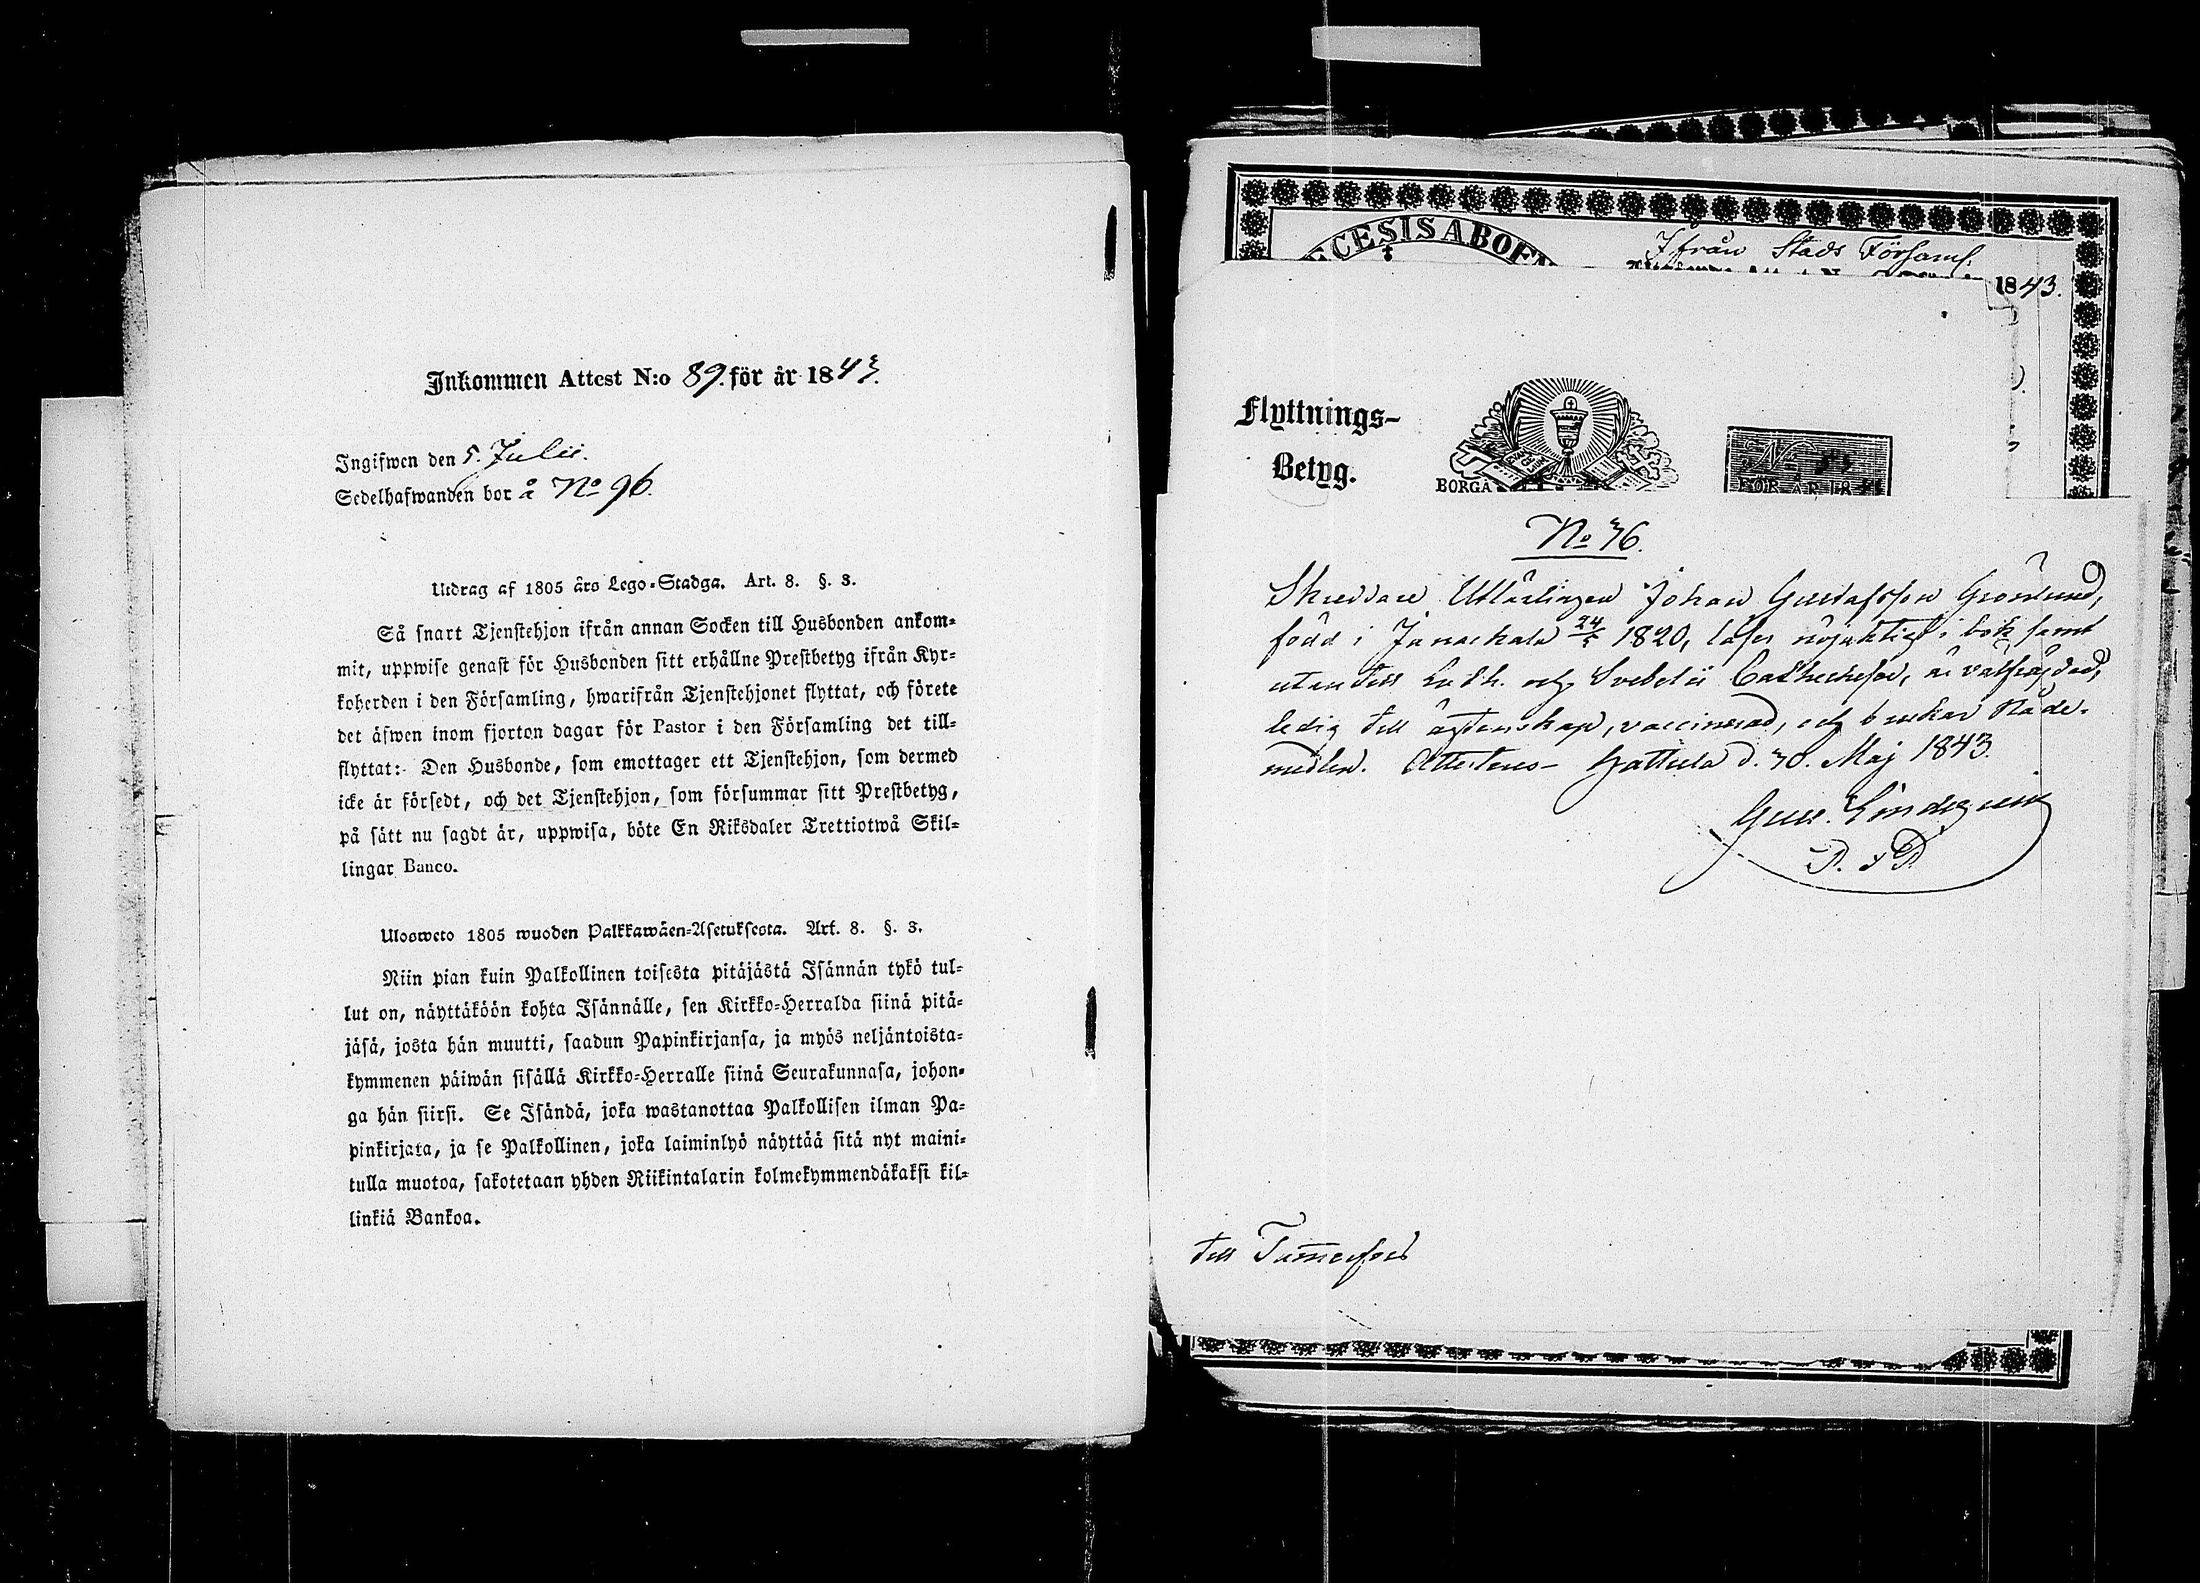 Inkommen Attest N:o 89. för år 1843.
Ingifwen den 5. Julii.
Sedelhafwanden bor å No 96.
Utdrag af 1805 års Lego-Stadga. Art. 8. §. 3.
Så snart Tjenstehjon ifrån annan Socken till Husbonden ankom-
mit, uppwise genast för Husbonden sitt erhållne Prestbetyg ifrån Kyr-
koherden i den Församling, hwarifrån Tjenstehjonet flyttat, och förete
det äfwen inom fjorton dagar för Pastor i den Församling det till-
flyttat: Den Husbonde, som emottager ett Tjenstehjon, som dermed
icke är försedt, och det Tjenstehjon, som försummar sitt Prestbetyg,
på sätt nu sagdt är, uppwisa, böte En Riksdaler Trettiotwå Skil-
lingar Banco.
Ulosweto 1805 wuoden Palkkawäen-Asetuksesta. Art. 8. §. 3.
Niin pian kuin Palkollinen toisesta pitäjästä Isännän tykö tul-
lut on, näyttäköön kohta Isännälle, sen Kirkko-Herralda siinä pitä-
jäsä, josta hän muutti, saadun Papinkirjansa, ja myös neljäntoista-
kymmenen päiwän sisällä Kirkko-Herralle siinä Seurakunnasa, johon-
ga hän siirsi. Se Isändä, joka wastanottaa Palkollisen ilman Pa-
pinkirjata, ja se Palkollinen, joka laiminlyö näyttää sitä nyt maini-
tulla muotoa, sakotetaan yhden Riikintalarin kolmekymmendäkaksi kil-
linkiä Bankoa.
ECESIS ABOEN
Ifrån Stads Församl.
1843.
Flyttnings-
Betyg.
BORGÅ
No
FÖR ÅR 18
No 36.
Skreddare Utlärlingen Johan Gustafsson Grönlund,
född i Janackala 24 1820, läser nöjaktigt i bok samt
utantill Luth. och Svebelii Catheches, är välfrägdad,
ledig till äktenskap, vaccinerad, och brukar Nåde-
medlen. Attesteras Hattula d. 30. Maj 1843.
Gust. Lindegren
till Tammerfors